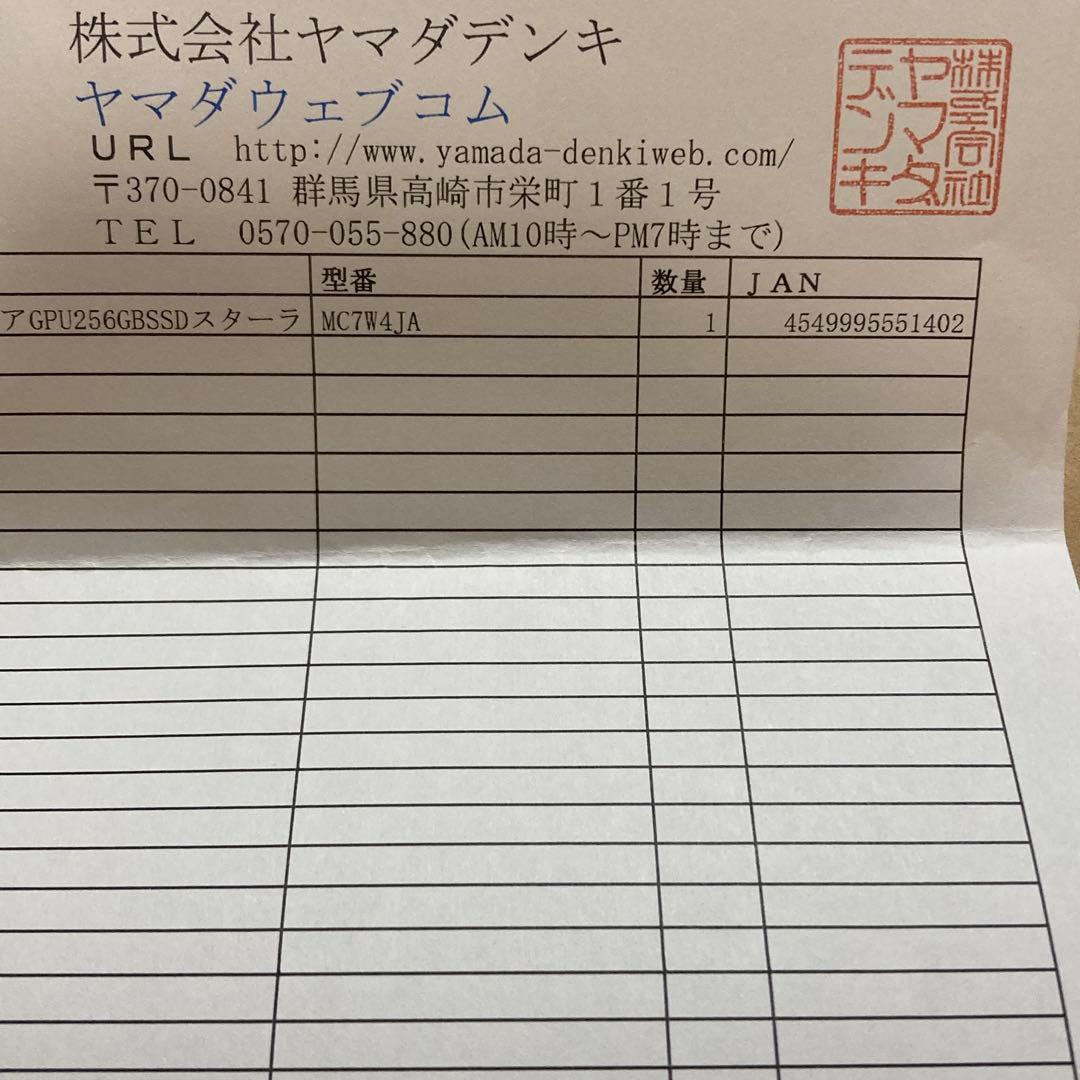 株式会社ヤマダデンキ
ヤマダウェブコム
URL http://www.yamada-denkiweb.com/
〒370-0841 群馬県高崎市栄町1番1号
TEL 0570-055-880(AM10時～PM7時まで)
株式会社
ヤマダ
デンキ
型番 数量 JAN
アGPU256GBSSDスターラ MC7W4JA 1 4549995551402